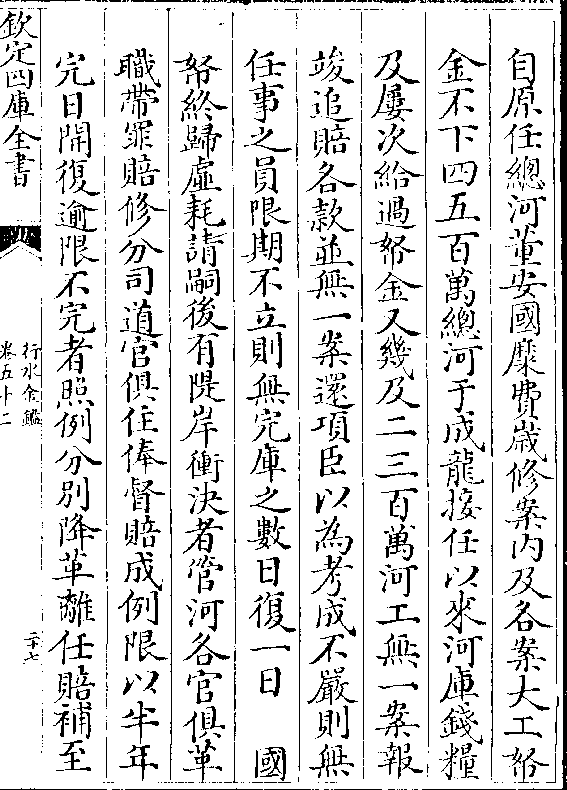 自原任總河董安國糜費歲修案内及各案大工帑
金不下四五百萬總河于成龍接任以來河庫錢糧
及屢次給過帑金又幾及二三百萬河工無一案報
竣追賠各款並無一案還項臣以為考成不嚴則無
任事之員限期不立則無完庫之數日復一日 國
帑終歸虛耗請嗣後有隄岸衝決者管河各官俱革
職帶罪賠修分司道官俱住俸督賠成例限以半年
完日開復逾限不完者照例分别降革離任賠補至
欽定四庫全書
行水金鑑
卷五十二
二十七